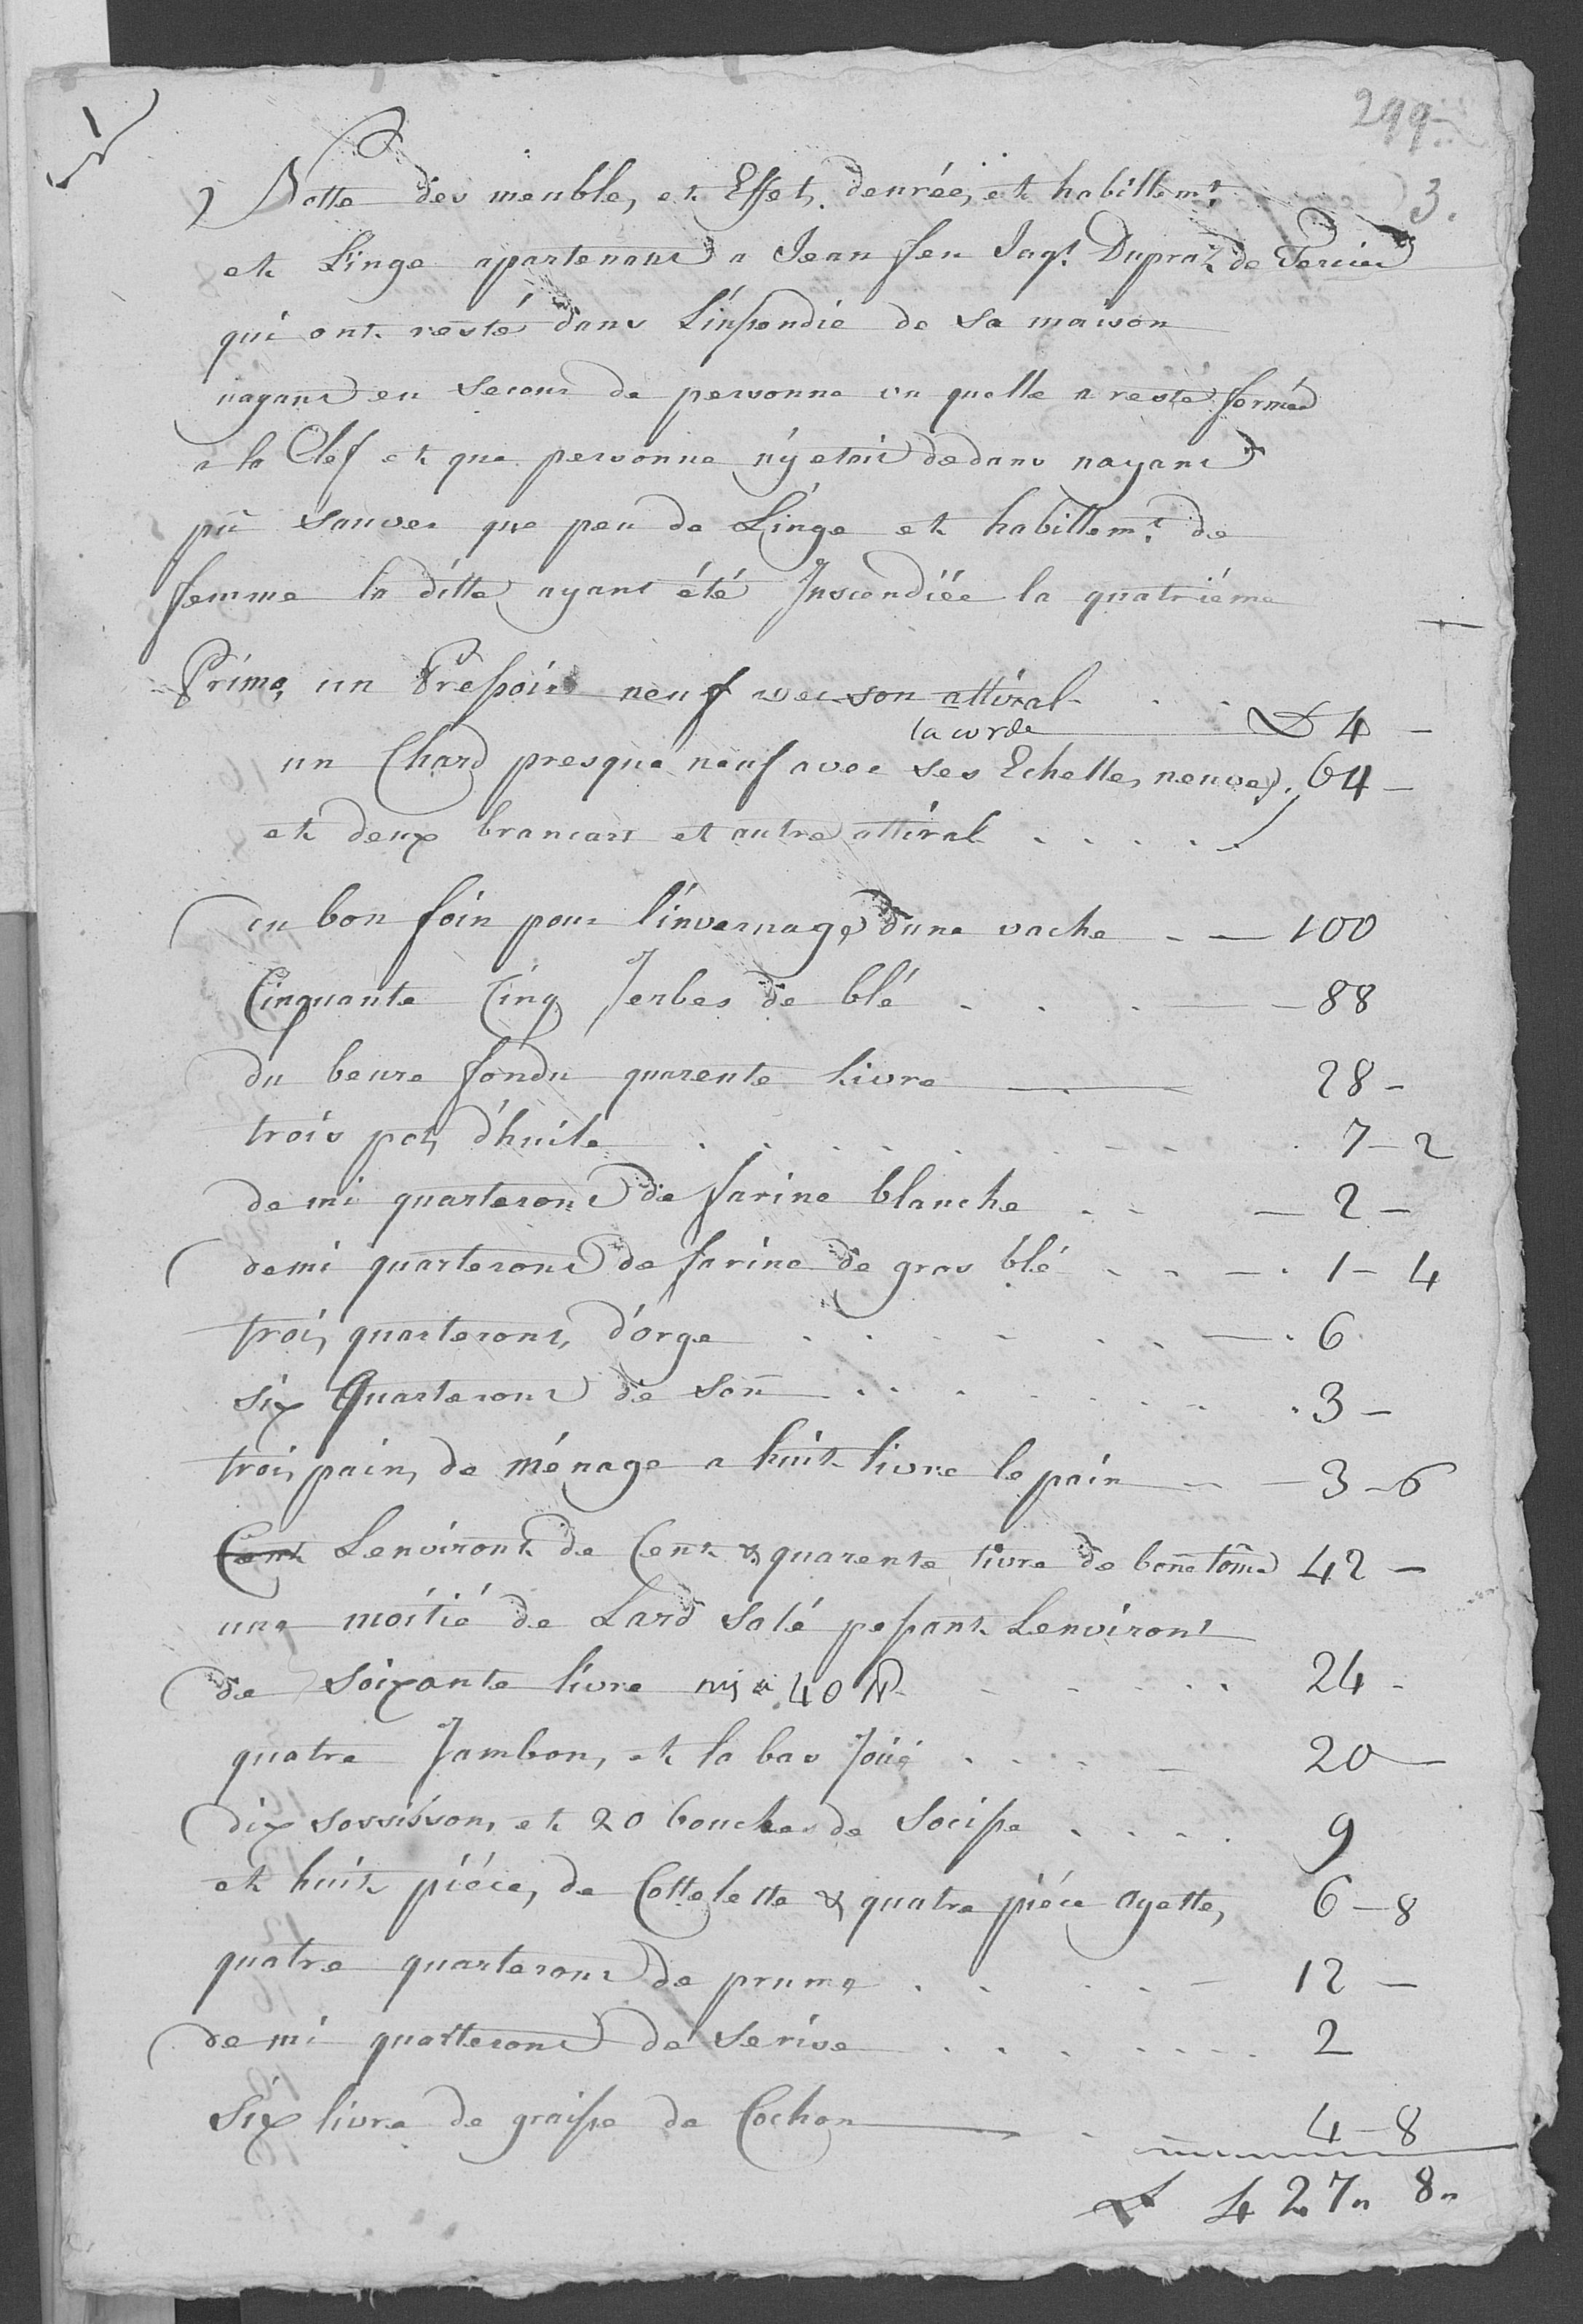 299.
3.
Notte des meubles, et Effets, denrées, et habillemt
et Linge apartenant a Jean feu Jaqs Dupraz de
qui ont resté dans L'insendie de sa maison
nayant eu secour de personne vu quelle a resté fermée
a la Clef et que personne n'y etoit dedans nayant
pû sauver que peu de Linge et habillemt de
femme la ditte ayant été Inscendiée la quatriéme
Primo, un Pressoir neuf avec son attiral
la corde 4 -
un Chard presque neuf avec ses Echelles neuves. 64 -
et deux brancart et autre attiral
en bon foin pour l'invernage d'une vache - 100
Cinquante Cinq Jerbes de blé - 88
du beure fondu quarente livre 28 -
trois pots d'huile 7 - 2
demi quarteront de farine blanche - 2 -
demi quarteront de farine de gros blé - 1 - 4
trois quarteronts d'orge - 6
six Quarteront de son 3 -
trois pains de ménage a huit livre le pain - 3 - 6
Cent Lenviront de Cent & quarente livre de bone tôme 42 -
une moitié de Lard Salé pesant Lenviront
de Soixante livre mis a 40 24 -
quatre Jambons, et la bas Joüe 20 -
dix sossissons, et 20 bouches de Socisse 9
et huit piéces, de Cottelette & quatre piéce ayettes, 6 - 8
quatre quarteront de prune - 12 -
demi quarteront de Serise 2
Six livre de graisse de Cochon 4 - 8
427 " 8 "